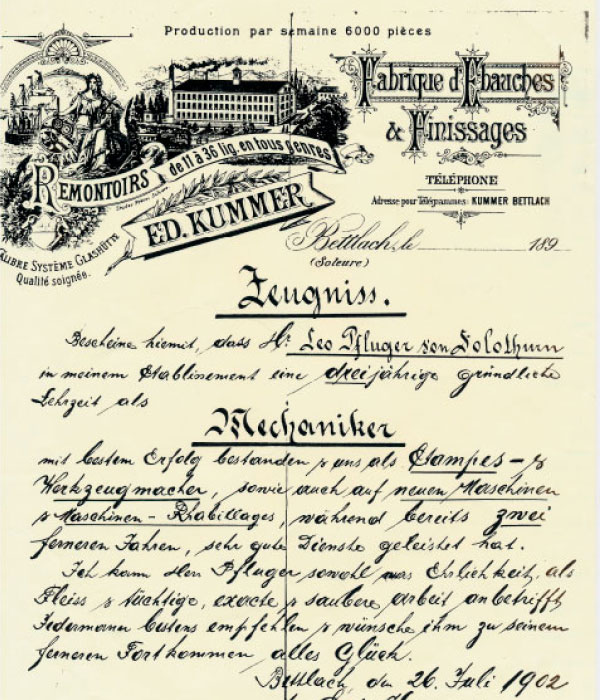 Production par semaine 6000 pièces
Fabrique d'Ebauches
& Finissages
REMONTOIRS de 11 à 36 lig. en tous genres
ED. KUMMER
TÉLÉPHONE
Adresse pour Télégrammes: KUMMER BETTLACH
CALIBRE SYSTÈME GLASHÜTTE
Qualité soignée.
Bettlach, le 189
(Soleure)
Zeugniss.
Bescheine hiemit, dass Hr. Leo Pfluger von Solothurn
in meinem Etablissement eine dreijährige gründliche
Lehrzeit als
Mechaniker
mit bestem Erfolg bestanden & uns als Stampes- &
Werkzeugmacher, sowie auch auf neuen Maschinen
& Maschinen-Rhabillages, während bereits zwei
ferneren Jahren, sehr gute Dienste geleistet hat.
Ich kann Herr Pfluger sowohl was Ehrlichkeit, als
Fleiss & tüchtige, exacte & saubere arbeit anbetrifft
Jedermann bestens empfehlen & wünsche ihm zu seinem
ferneren Fortkommen alles Glück.
Bettlach den 26. Juli 1902